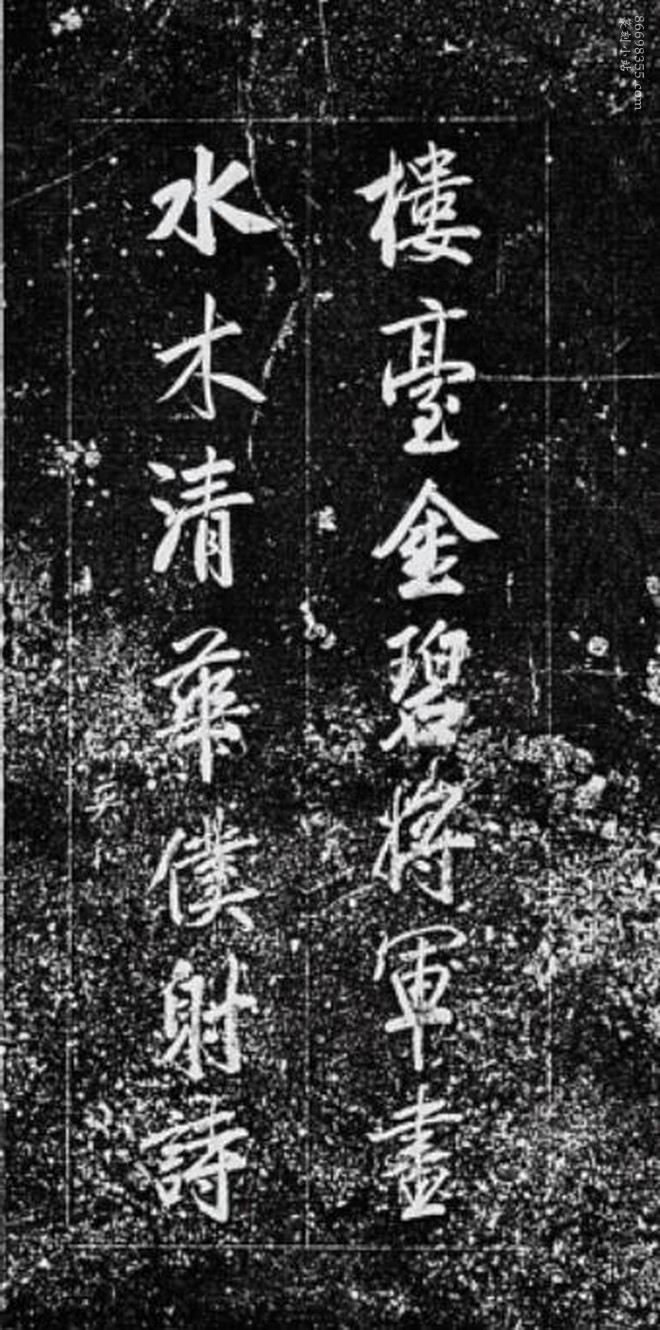 樓臺金碧將軍畫
水木清華僕射詩
86698355.com